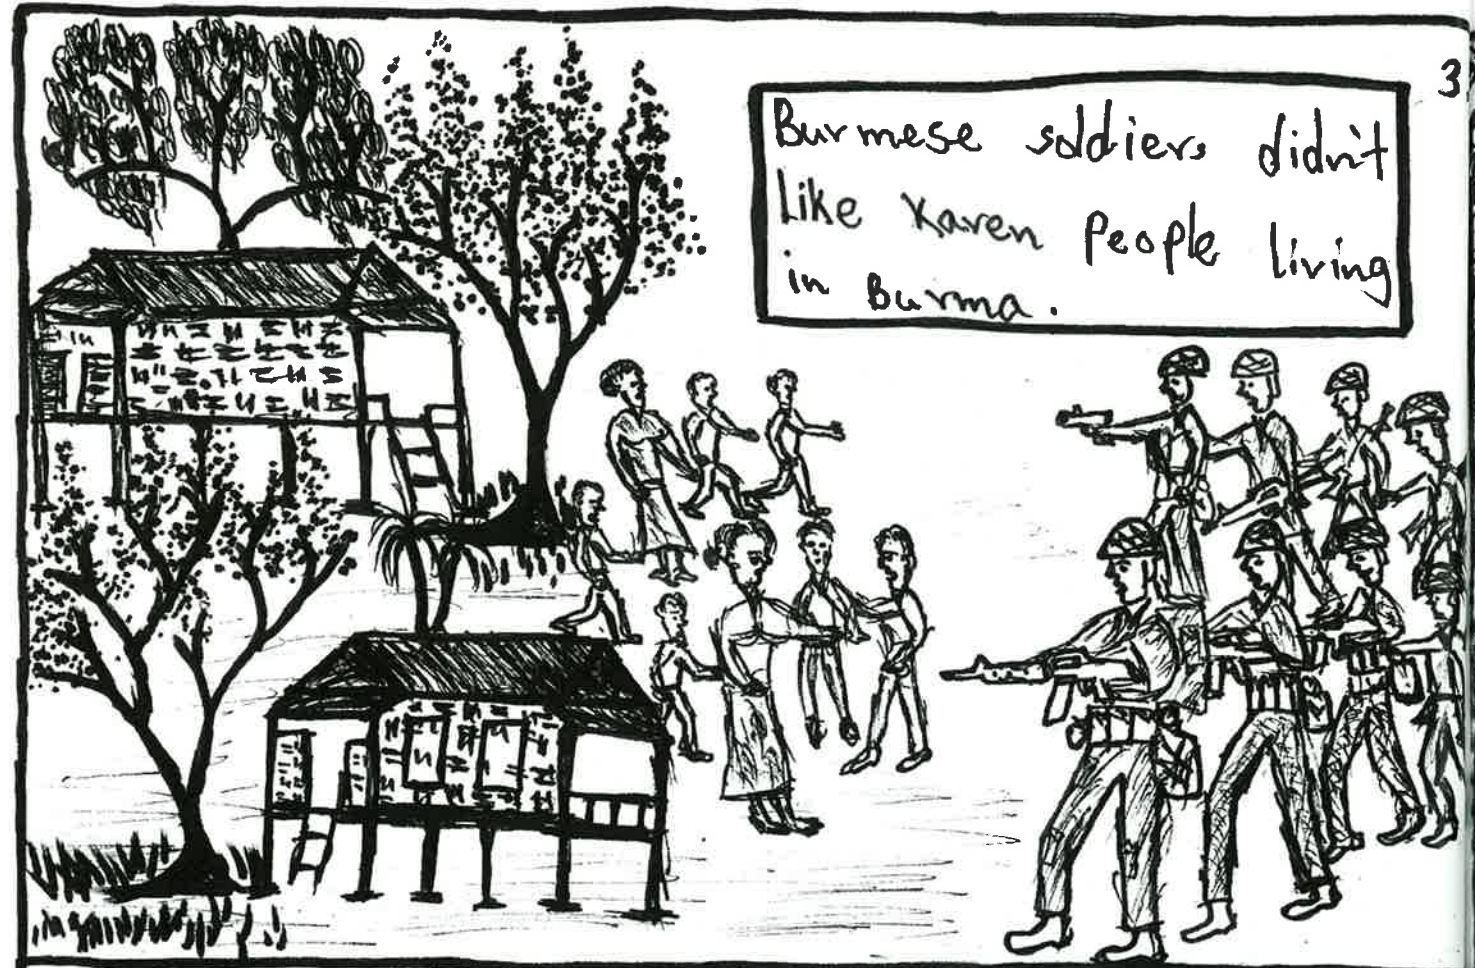 3
Burmese soldiers didn't
like Karen People living
in Burma.